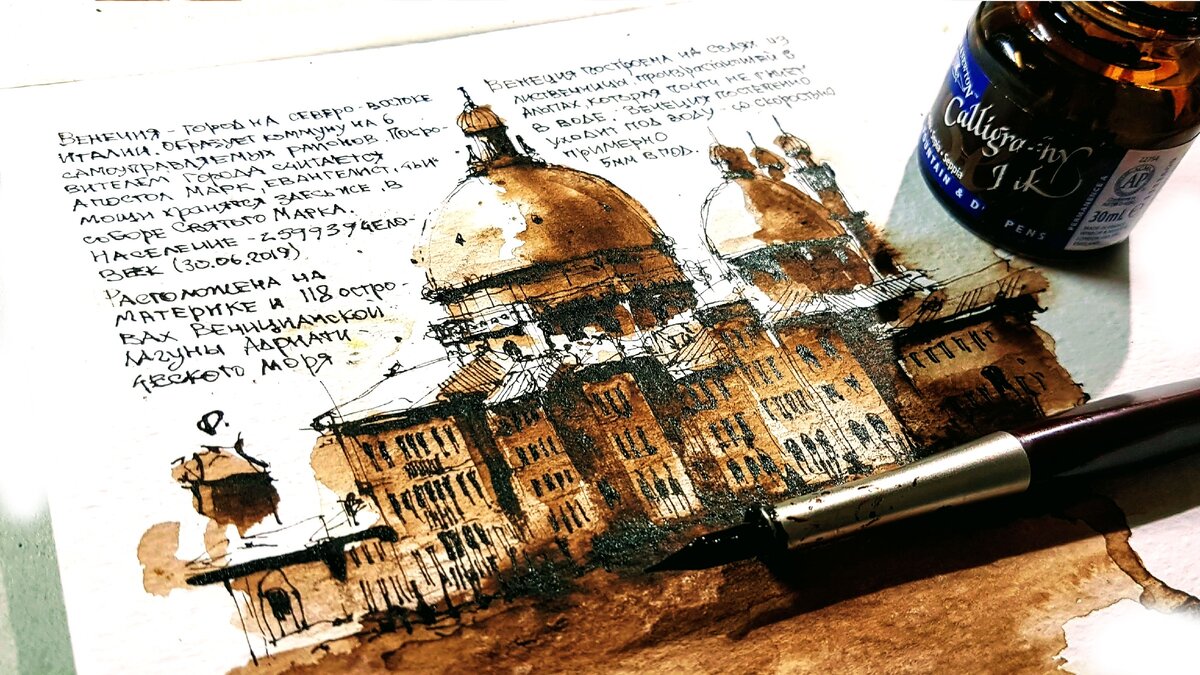 Венеция - город на северо-востоке
Италии. Образует коммуну на 6
самоуправляемых районов. Покро-
вителем города считается
апостол Марк, Евангелист, чьи
мощи хранятся здесь же, в
соборе Святого Марка.
Население - 259939 чело-
век (30.06.2019)
Расположена на
материке и 118 остро-
вах Веницианской
лагуны Адриати-
ческого моря
Венеция построена на сваях из
лиственницы произрастающей в
Альпах, которая почти не гниет
в воде. Венеция постепенно
уходит под воду - со скоростью
примерно
5мм в год.
Calligraphy
Ink
Sepia
FOUNTAIN & D PENS
PERMANENCE A
AP
30ml